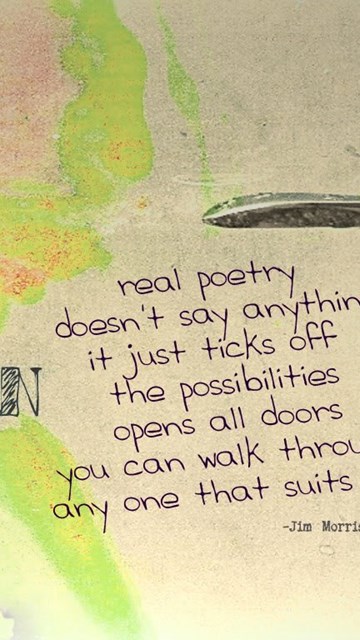 real poetry
doesn't say anythin
it just ticks off
the possibilities
N
opens all doors
you can walk throu
any one that suits
-Jim Morris